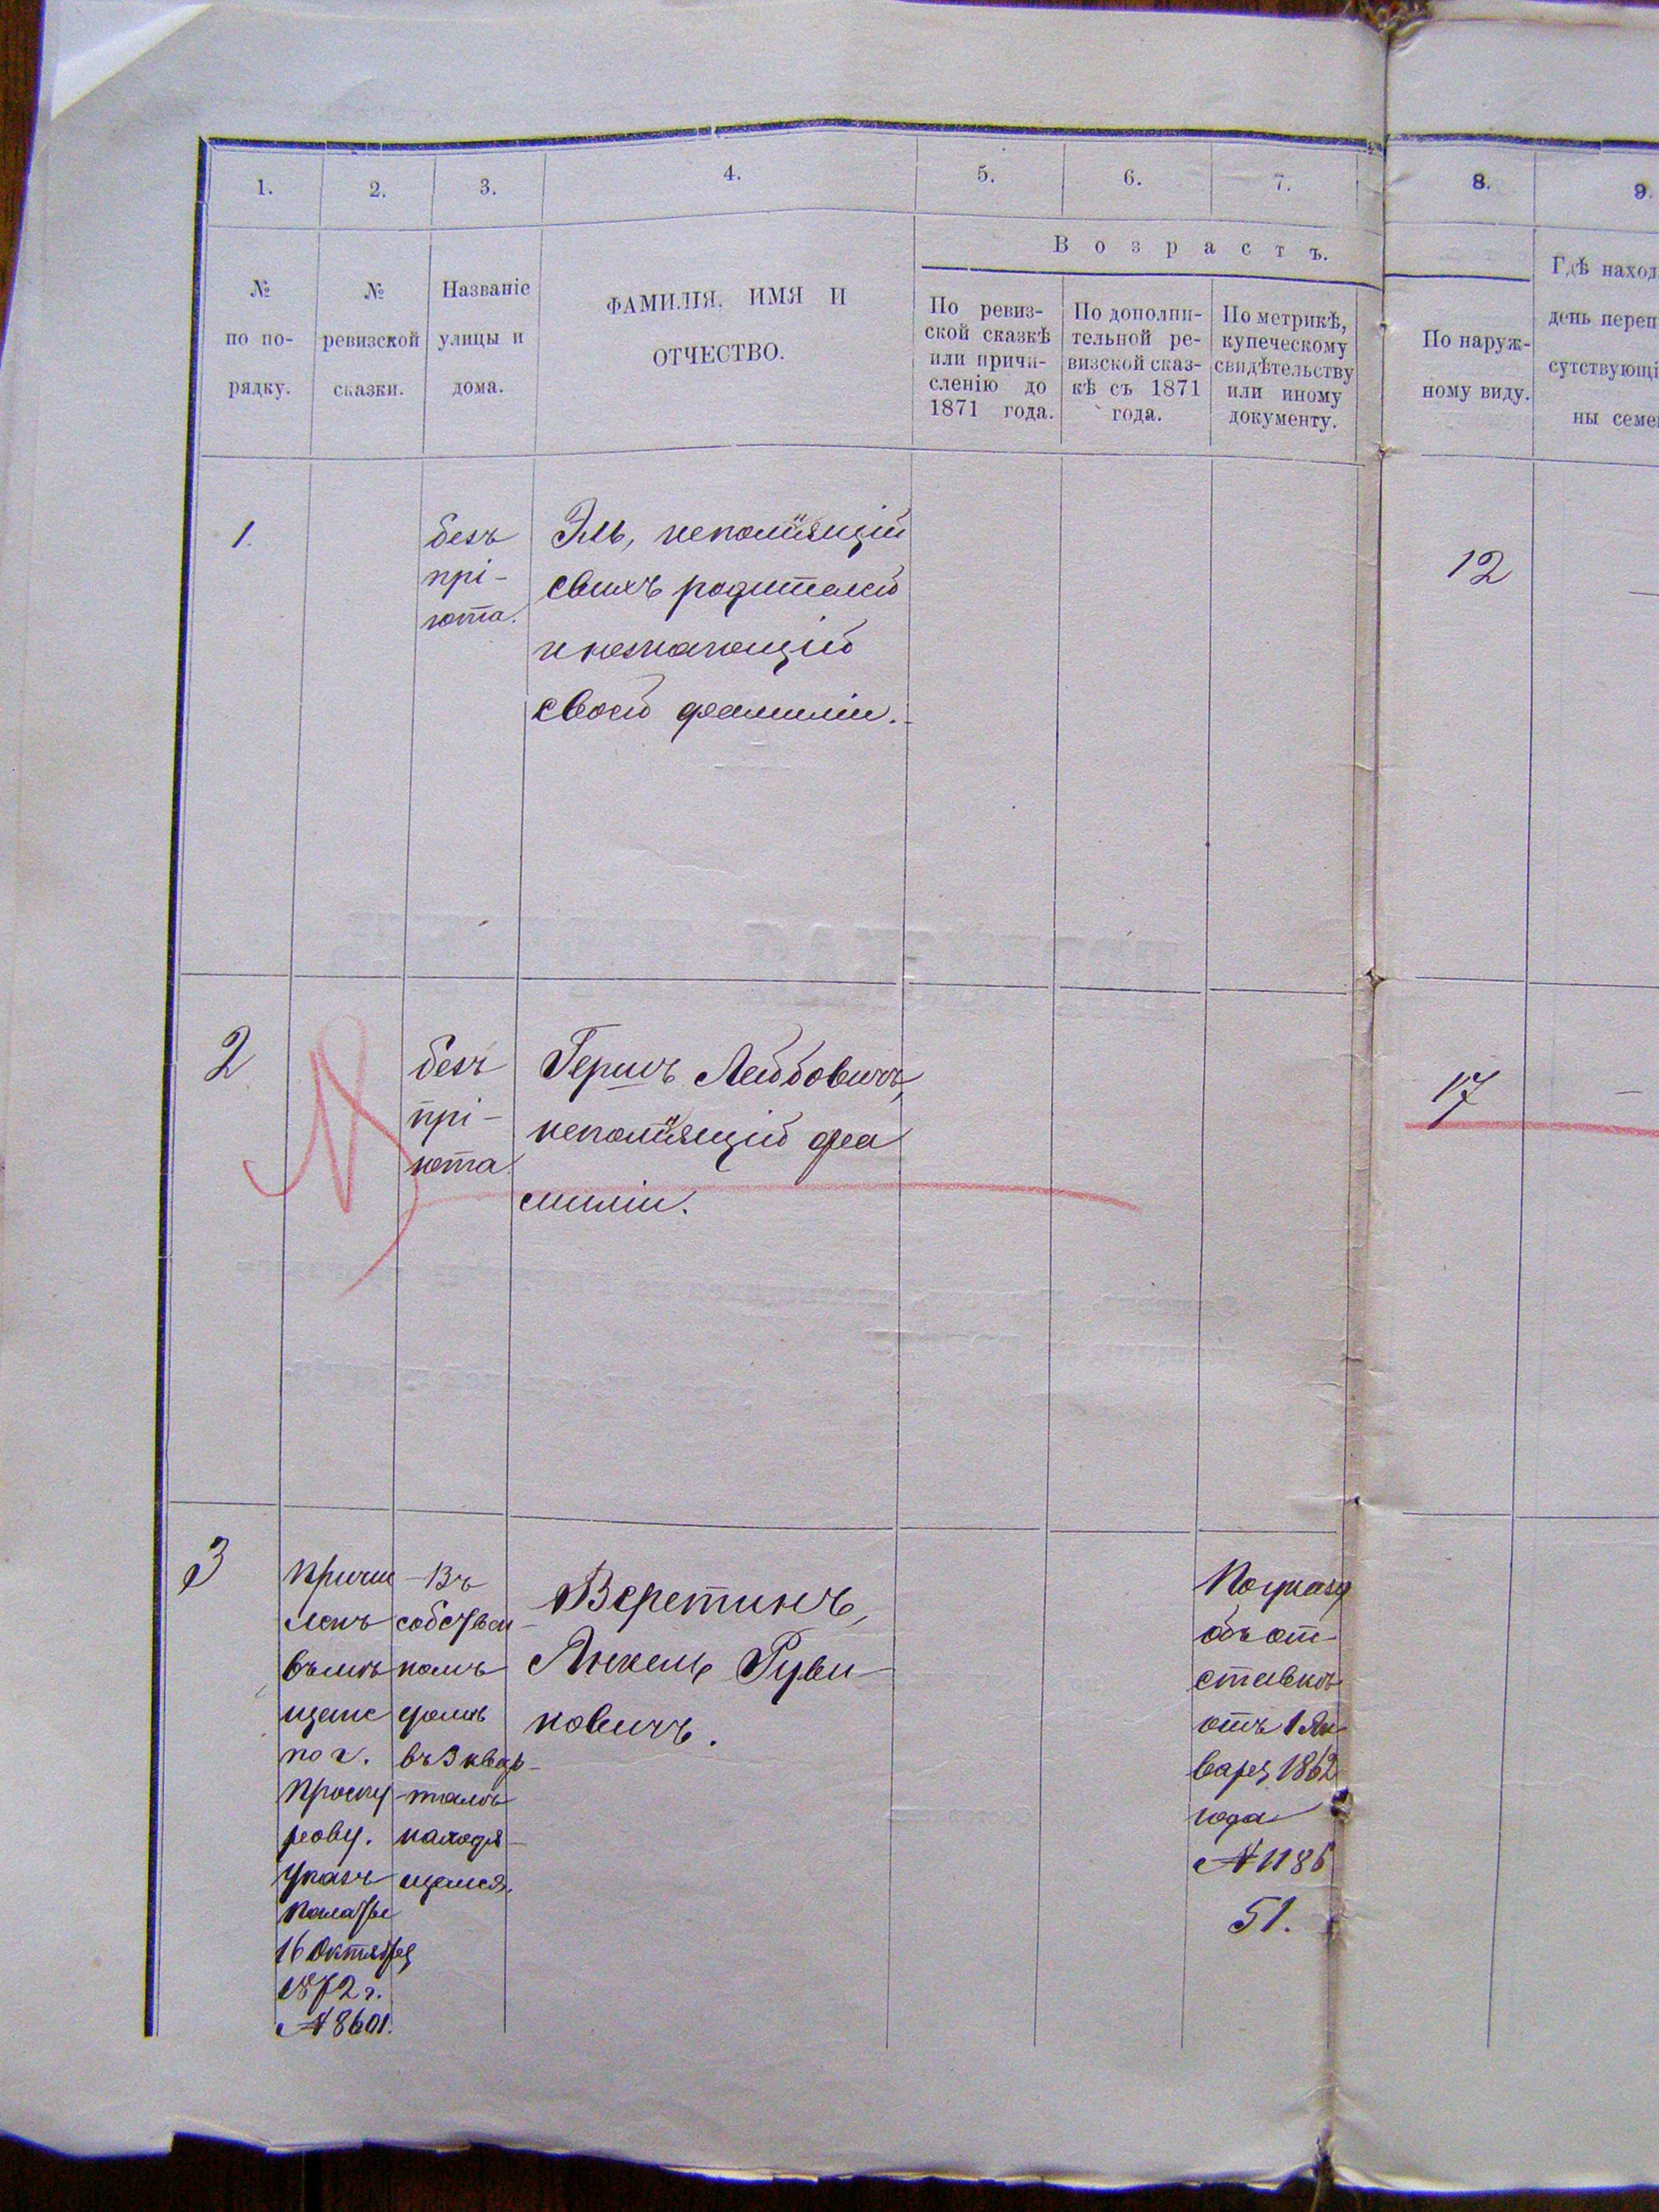 1.
2.
3.
4.
5.
6.
7.
8.
9.
№
по по-
рядку.
№
ревизской
сказки.
Названіе
улицы и
дома.
ФАМИЛІЯ, ИМЯ И
ОТЧЕСТВО.
Возрастъ.
По ревиз-
ской сказкѣ
или причи-
сленію до
1871 года.
По дополни-
тельной ре-
визской сказ-
кѣ съ 1871
года.
По метрикѣ,
купеческому
свидѣтельству
или иному
документу.
По наруж-
ному виду.
Гдѣ наход
день переп
сутствующі
ны семе
1.
безъ
прі-
юта.
Эль, непомнящій
своихъ родителей
и незнающій
своей фамиліи.
12
2
безъ
прі-
юта
Гершъ Лейбовичъ,
непомнящій фа
миліи.
17
3
Причи
ленъ
въ мѣ
щане
по г.
Проску
рову.
Указъ
Палаты
16 Октября
1872 г.
№ 8601.
Въ
собствен-
номъ
домѣ
въ 3 квар-
талѣ
находя-
щемся.
Веретинъ,
Янкель Руви-
новичъ.
По указу
объ от-
ставкѣ
отъ 1 Ян
варя 1862
года
№ 1186
51.